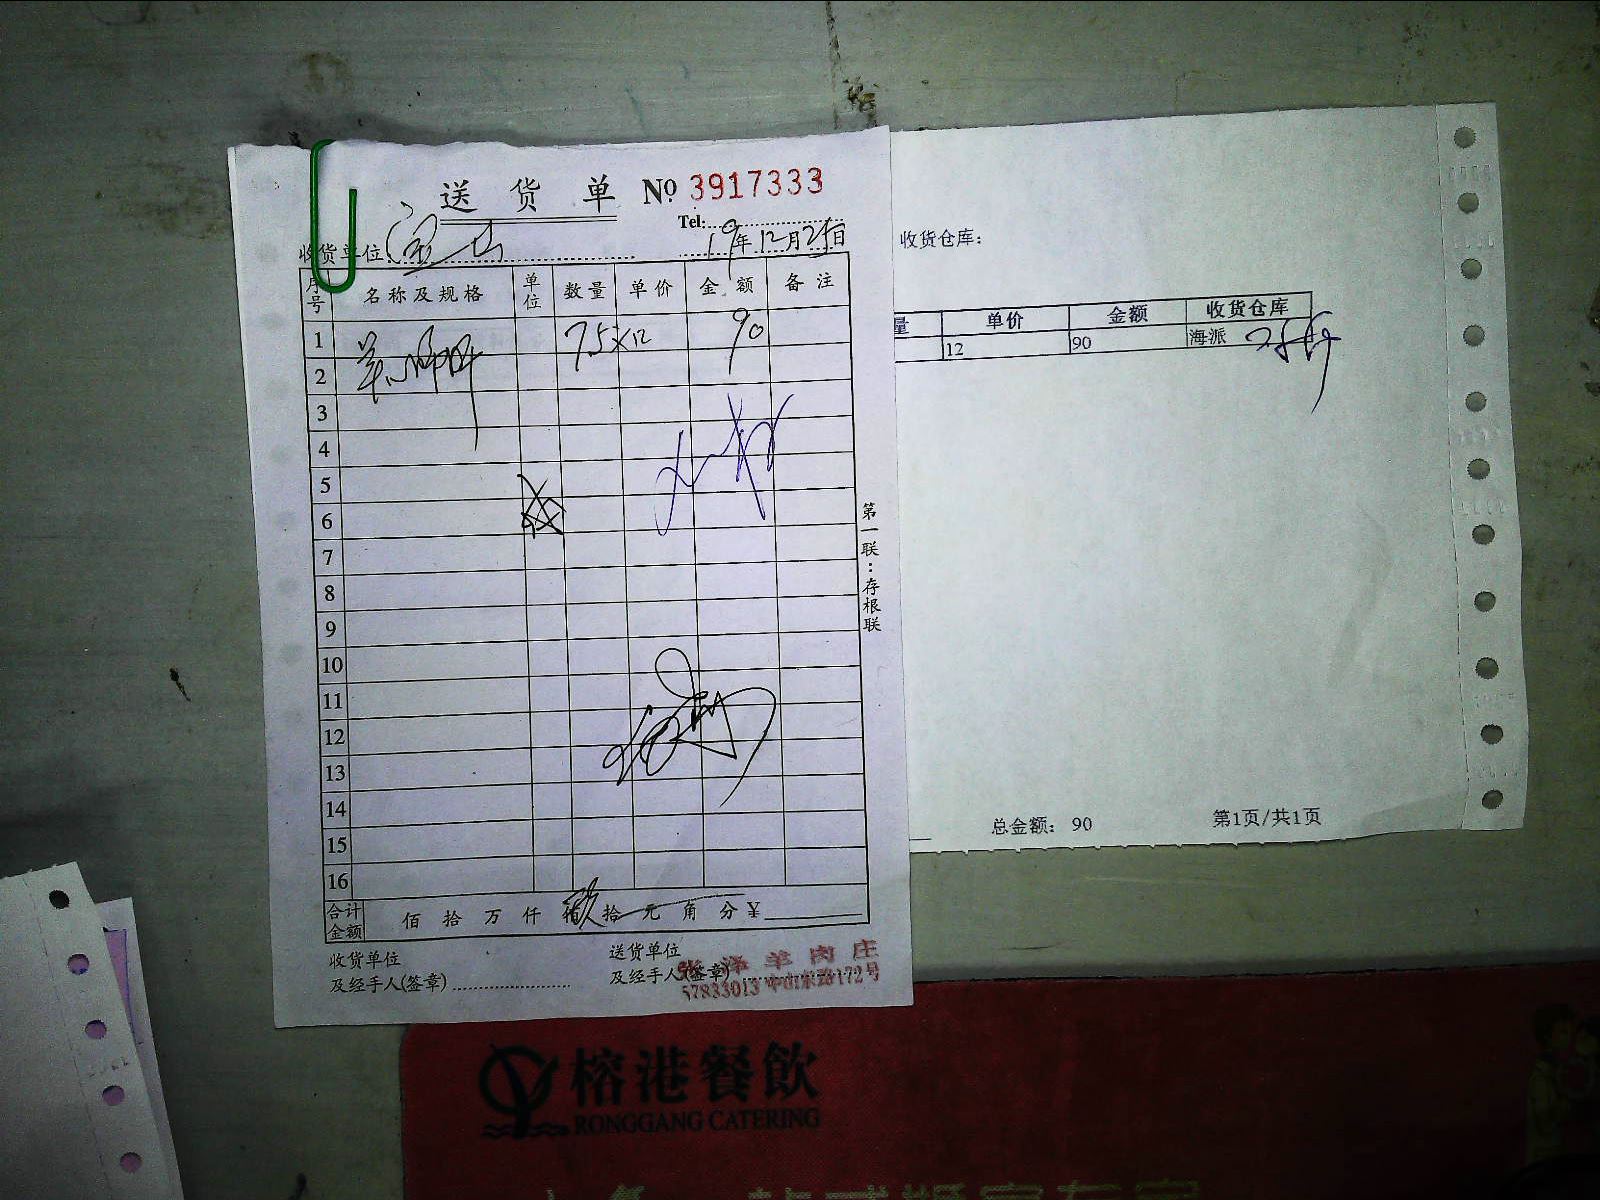 送货单 № 3917333
Tel:
收货单位 宝山 19年12月25日
序号 名称及规格 单位 数量 单价 金额 备注
1 7.5×12 90
2
3
4
5
6
7
8
9
10
11
12
13
14
15
16
合计金额 佰 拾 万 仟 佰 玖 拾 元 角 分 ¥
收货单位 送货单位
及经手人(签章) 及经手人(签章)
张泽羊肉庄
57833013 中山东路172号
第一联:存根联
收货仓库:
量 单价 金额 收货仓库
12 90 海派
总金额: 90 第1页/共1页
榕港餐飲
RONGGANG CATERING